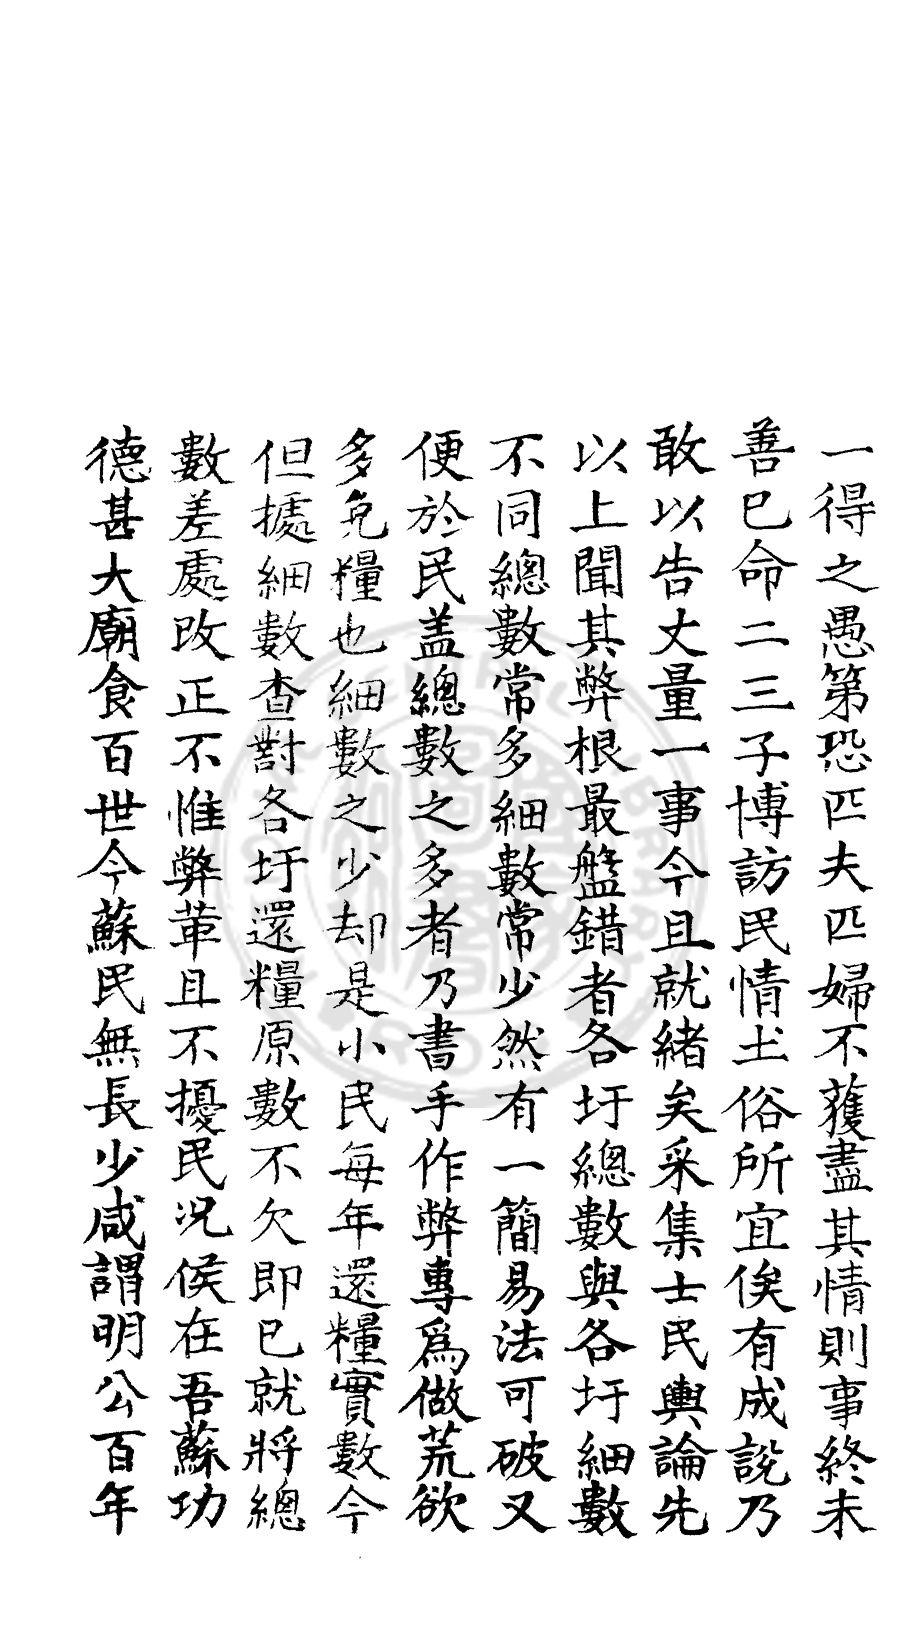 一得之愚第恐匹夫匹婦不蒦盡其情則事終未
善已命二三子博訪民情土俗所宜俟有成說乃
敢以告丈量一事今且就緒矣采集士民輿論先
以上聞其弊根最盤錯者各圩總數與各圩細數
不同總數常多細數常少然有一簡易法可破又
便於民盖總數之多者乃書手作弊專爲做荒欲
多免糧也細數之少却是小民每年還糧實數今
但㨿細數查對各圩還糧原數不欠即已就將總
數差處改正不惟弊革且不擾民况侯在吾蘇功
德甚大廟食百世今蘇民無長少咸謂明公百年